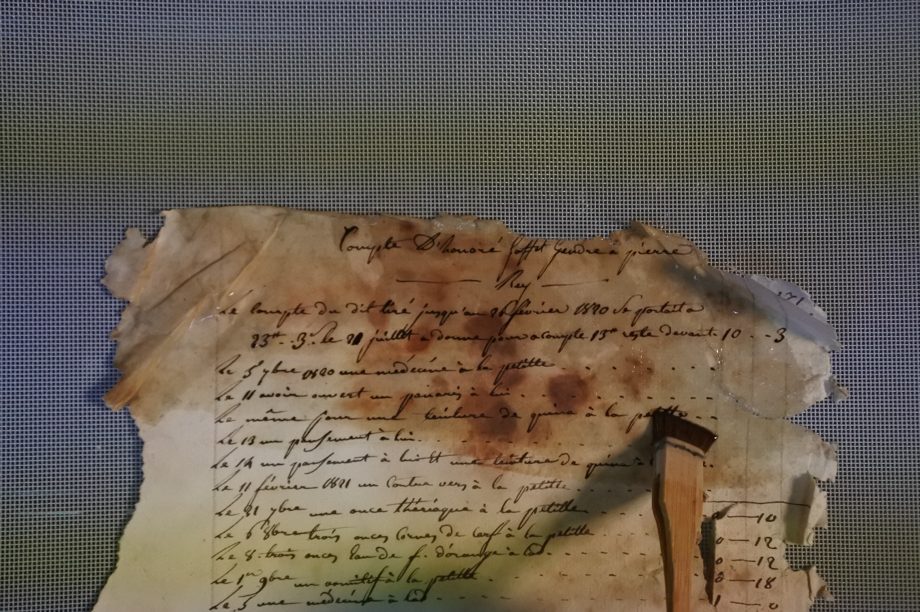 Compte D'honoré Gendre à pierre
Rey
Le Compte du dit tiré jusqu'au 26 février 1820 Se portait a
23# .. 3s. Le 21 juillet a donné pour acompte 13# reste devant 10 .. 3
Le 5 7bre 1820 une médecine à la petitte
Le 11 avoir ouvert un panaris à lui
Le même jour une teinture de quina à la petitte
Le 13 un pansement à lui
Le 14 un pansement à lui et une teinture de quina à
Le 11 février 1821 un Contre vers à la petitte
Le 21 7bre une once thériaque à la petitte
Le 6 8bre trois onces Cornes de Cerf à la petitte 0 — 10
Le 8 trois onces Eau de f. d'orange à 0 — 12
Le 1er 9bre un vomitif à la petitte 0 — 12
0 — 18
Le 3 une médecine à 1 — 0